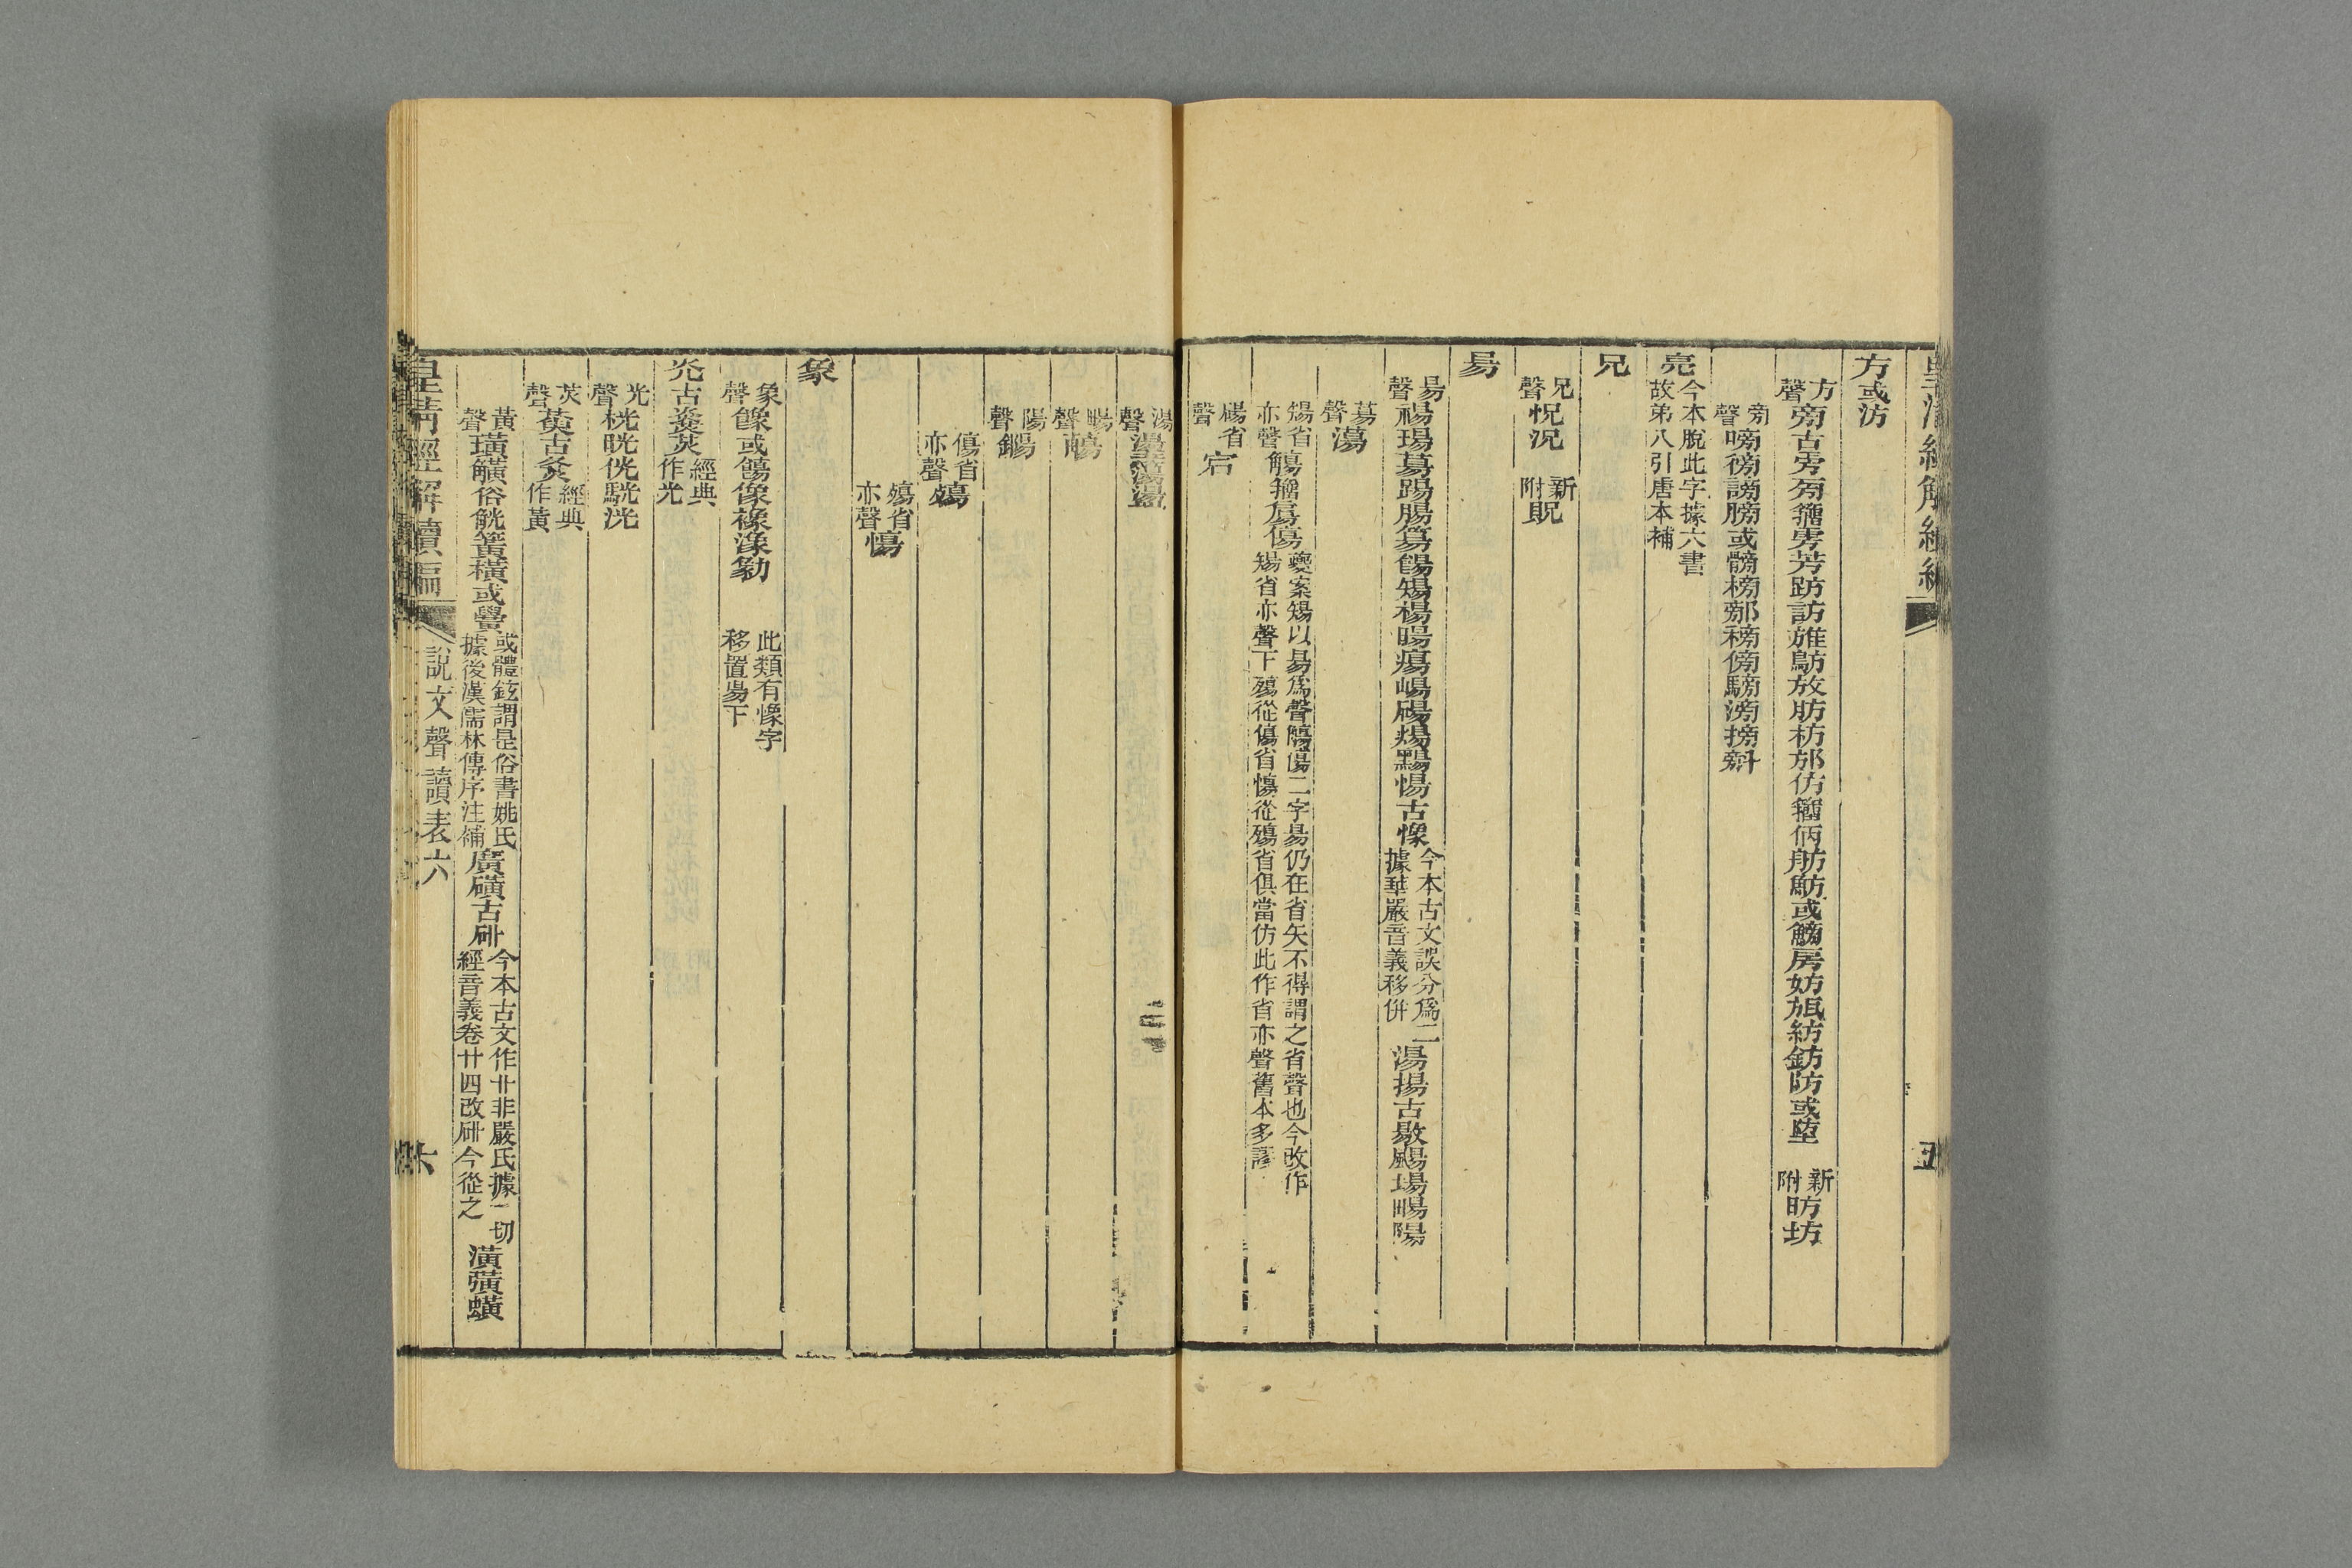 皇清經解續編
五
方或汸
方聲 旁古㫄𣃟籒雱芳趽訪䧛鶭放肪枋邡仿籒俩舫魴或鰟房妨瓬紡鈁防或堕 新附 昉坊
旁聲 嗙徬謗膀或髈榜郍稖傍騯滂搒斜
亮 今本脫此字據六書故弟八引唐本補
兄
兄聲 怳況 新附 貺
昜
昜聲 禓瑒䓪踼腸簜餳煬楊暘瘍崵碭煬黵愓古惕 今本古文誤分爲二據華嚴音義移併 湯揚古敭颺場暢陽
募聲 蕩
煬省亦聲 觴籒𠩺傷 夔案煬以昜爲聲觴傷二字昜仍在省矢不得謂之省聲也今改作煬省亦聲下殤從傷省慯從殤省俱當仿此作省亦聲舊本多誤
碭省聲 宕
湯聲 盪蕩簜
暢聲
陽聲
傷省亦聲 殤
殤省亦聲 慯
象
象聲 餯或像像襐潒勨 此類有惕字移置昜下
炗古𤎫炗 經典作光
光聲 桄晄侊駫洸
炗聲 黃古灸 經典作黃
黃聲 璜觵俗觥簧橫或𧶛 或體鉉謂是俗書姚氏據後漢儒林傳序注補 廣磺古𥐻 今本古文作卝非嚴氏據一切經音義卷廿四改𥐻今從之 潢彉蟥
皇清經解續編
說文聲讀表六
六